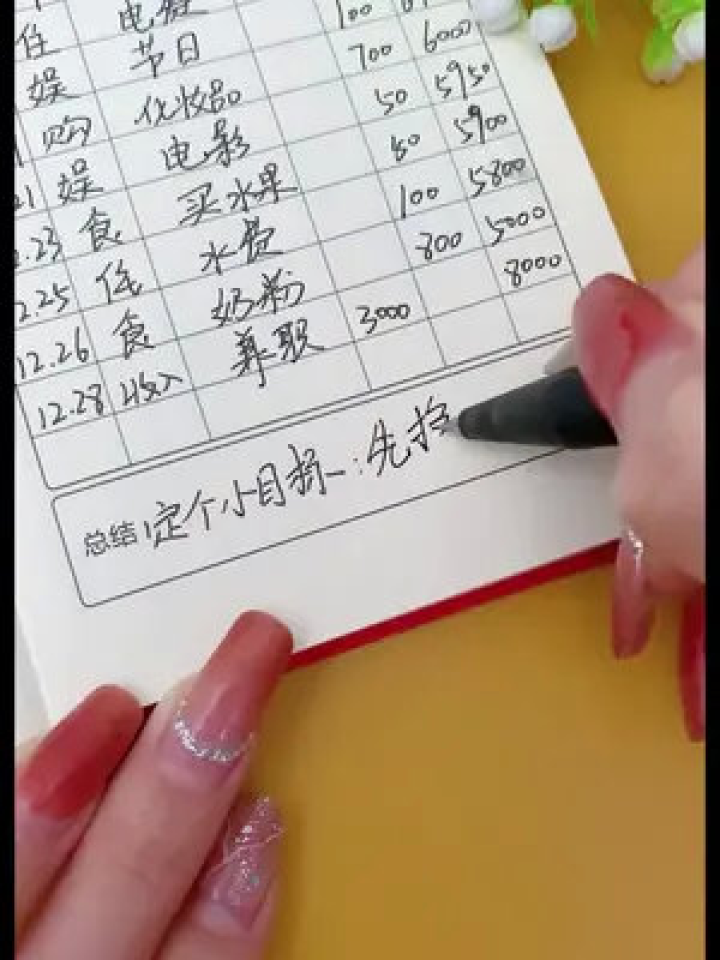 住 电费
娱 节日 100
购 化妆品 700 6000
21 娱 电影 50 5950
2.23 食 买水果 50 5900
2.25 住 水费 100 5800
12.26 食 奶粉 800 5000
12.28 收入 兼职 3000 8000
总结 定个小目标:先